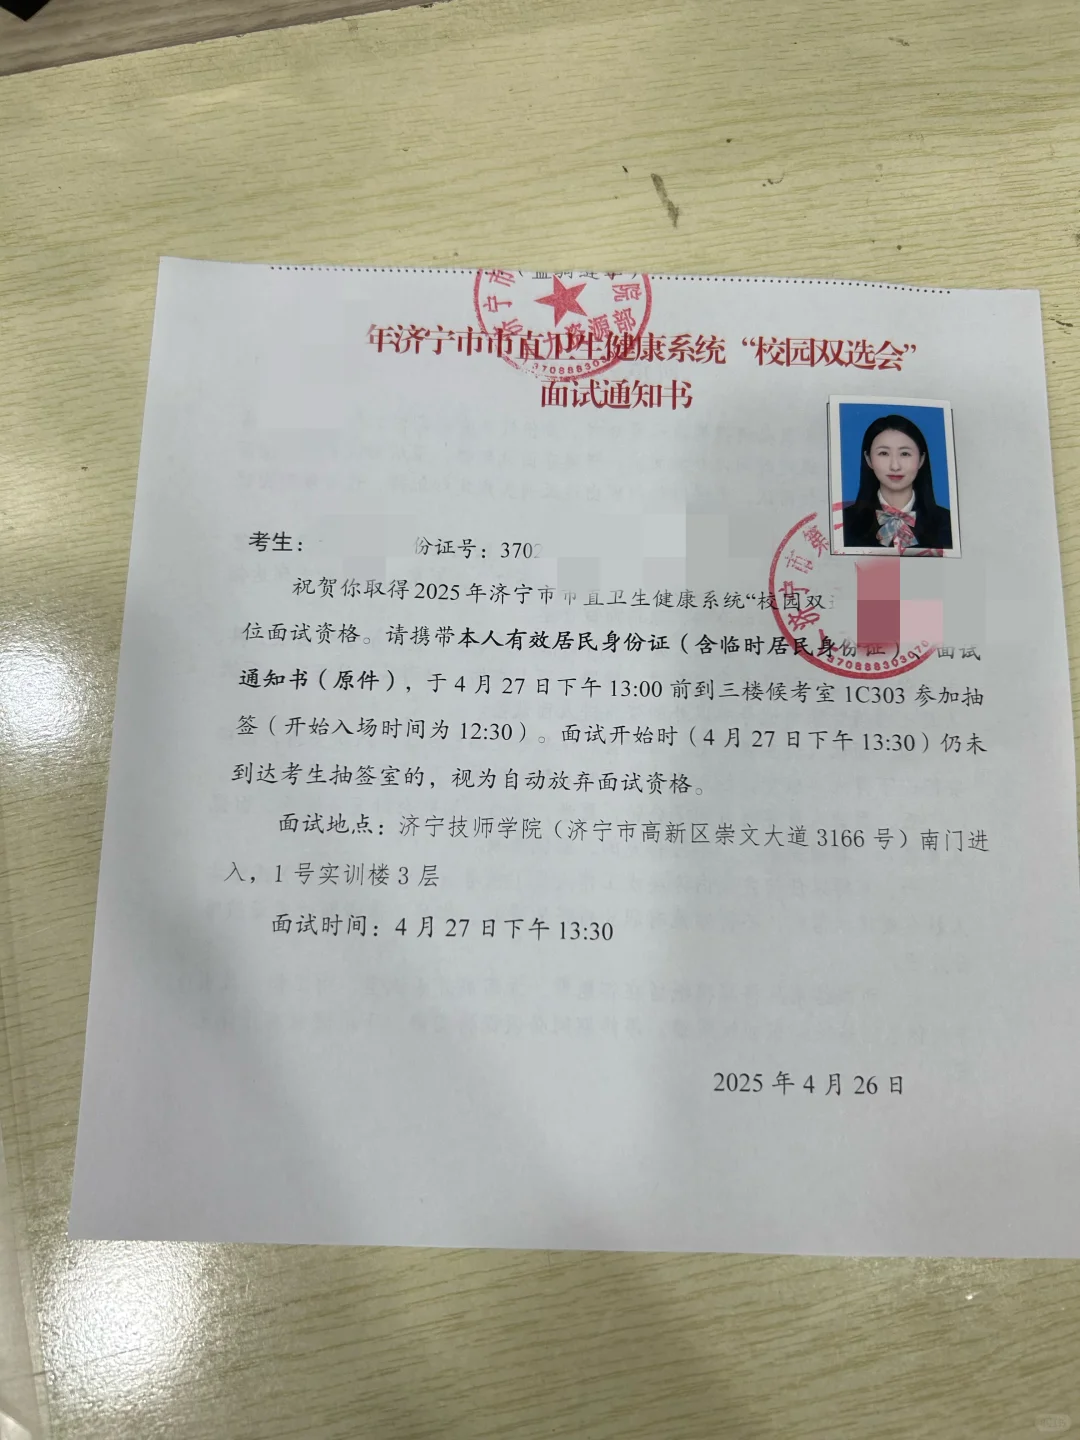 （盖骑缝章）
年济宁市市直卫生健康系统“校园双选会”
面试通知书
考生：
份证号：3702
祝贺你取得2025年济宁市市直卫生健康系统“校园双
位面试资格。请携带本人有效居民身份证（含临时居民身份证）、面试
通知书（原件），于4月27日下午13:00前到三楼候考室1C303参加抽
签（开始入场时间为12:30）。面试开始时（4月27日下午13:30）仍未
到达考生抽签室的，视为自动放弃面试资格。
面试地点：济宁技师学院（济宁市高新区崇文大道3166号）南门进
入，1号实训楼3层
面试时间：4月27日下午13:30
2025年4月26日
济宁市
院
资源部
济宁市第
370888303070